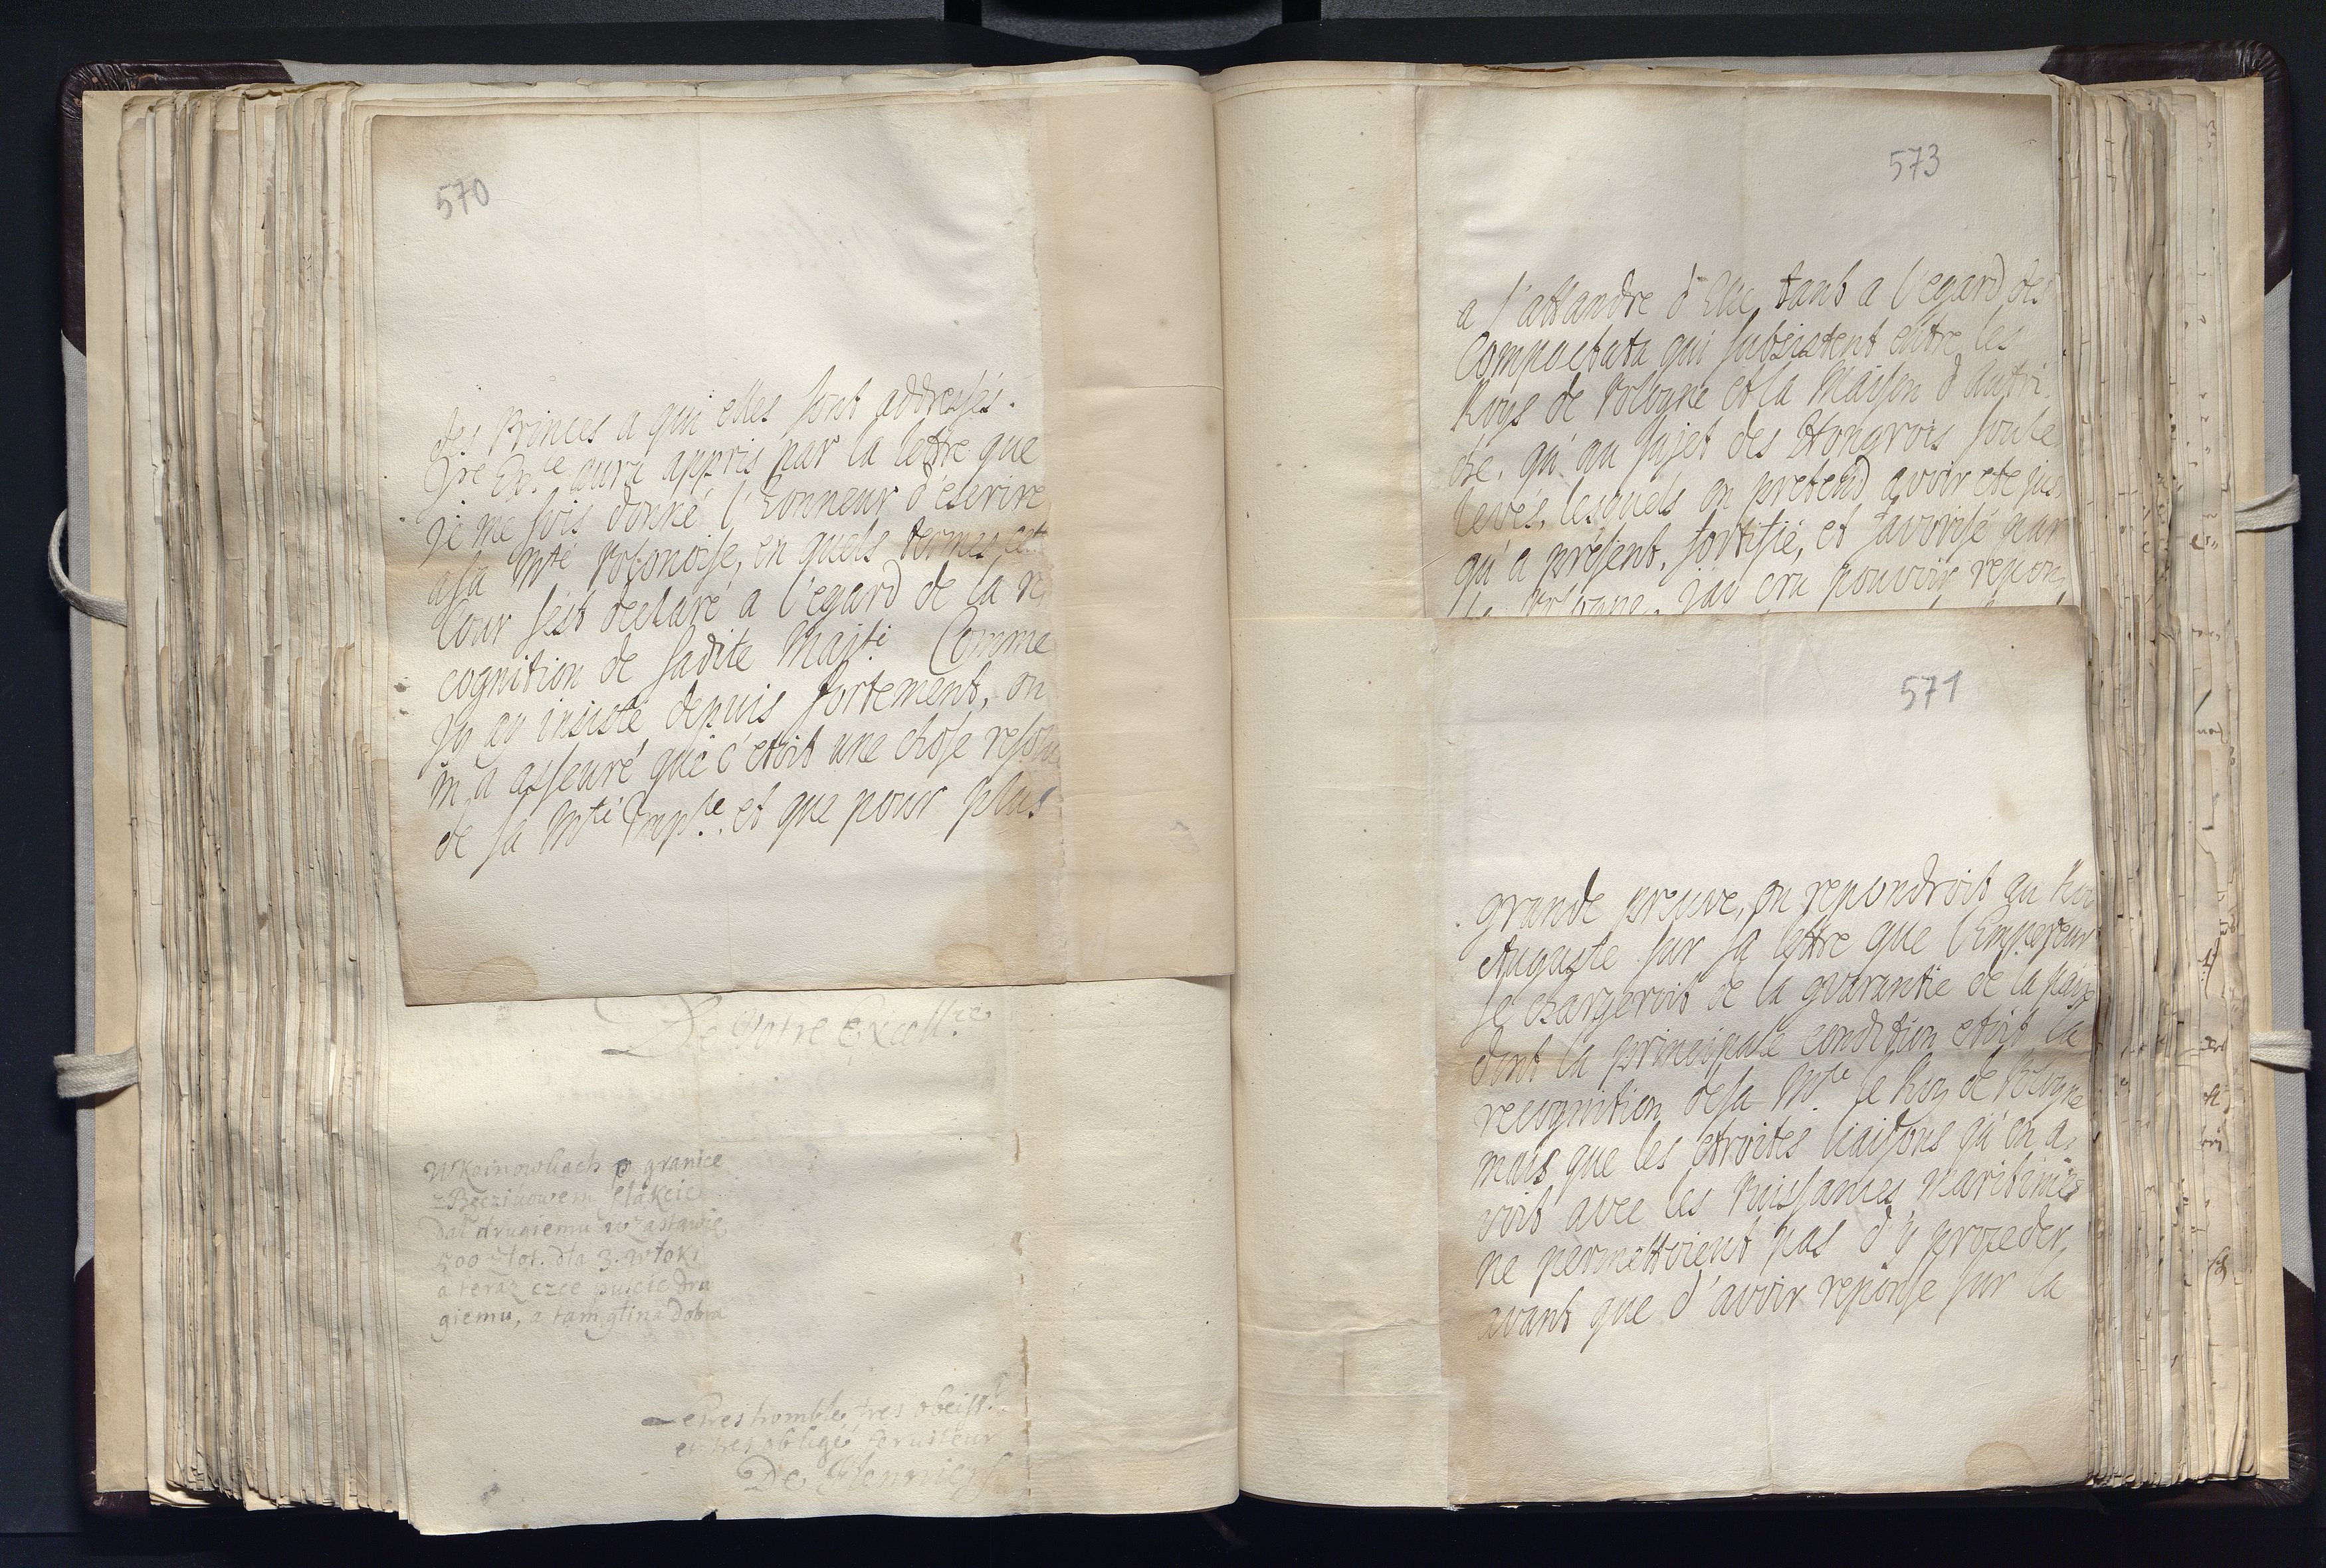 570
des Princes a qui elles sont addressés.
Vre Ex.ce aura appris par la lettre que
je me suis donné l'honneur d'escrire
a sa Mté Polonoise, en quels termes cette
Cour s'est declaré a l'egard de la re,
cognition de sadite Majté. Comme
j'y ay insisté depuis fortement, on
m'a asseuré que c'etoit une chose resolu
de sa Mté Imp.le, et que pour plus
De Votre Excell.ce
p granice
dał drugiemu w zastawie
500 złot. dla 3. włoki
a teraz czce puscic dru
giemu, a tam glina dobra
tres humble, tres obeiss.t
et tres obligé serviteur
De
573
a l'attandre d'Elle, tant a l'egard des
Compactata qui subsistent entre les
Roys de Pologne et la Maison d'Autri,
che, qu'au sujet des Hongrois soule
levés, lesquels on pretend avoir eté jus,
qu'a présent, fortifié, et favorisé par
la Pologne. J'ai cru pouvoir repon,
571
grande preuve, on repondroit au Roi
Auguste sur sa lettre que l'Empereur
se chargeroit de la gvarantie de la paix
dont la principale condition etoit la
recognition de sa Mté le Roy de Pologne
mais que les etroites liaisons qu'on a,
voit avec les Puissances Maritimes
ne permettoient pas d'y proceder,
avant que d'avoir reponse sur la